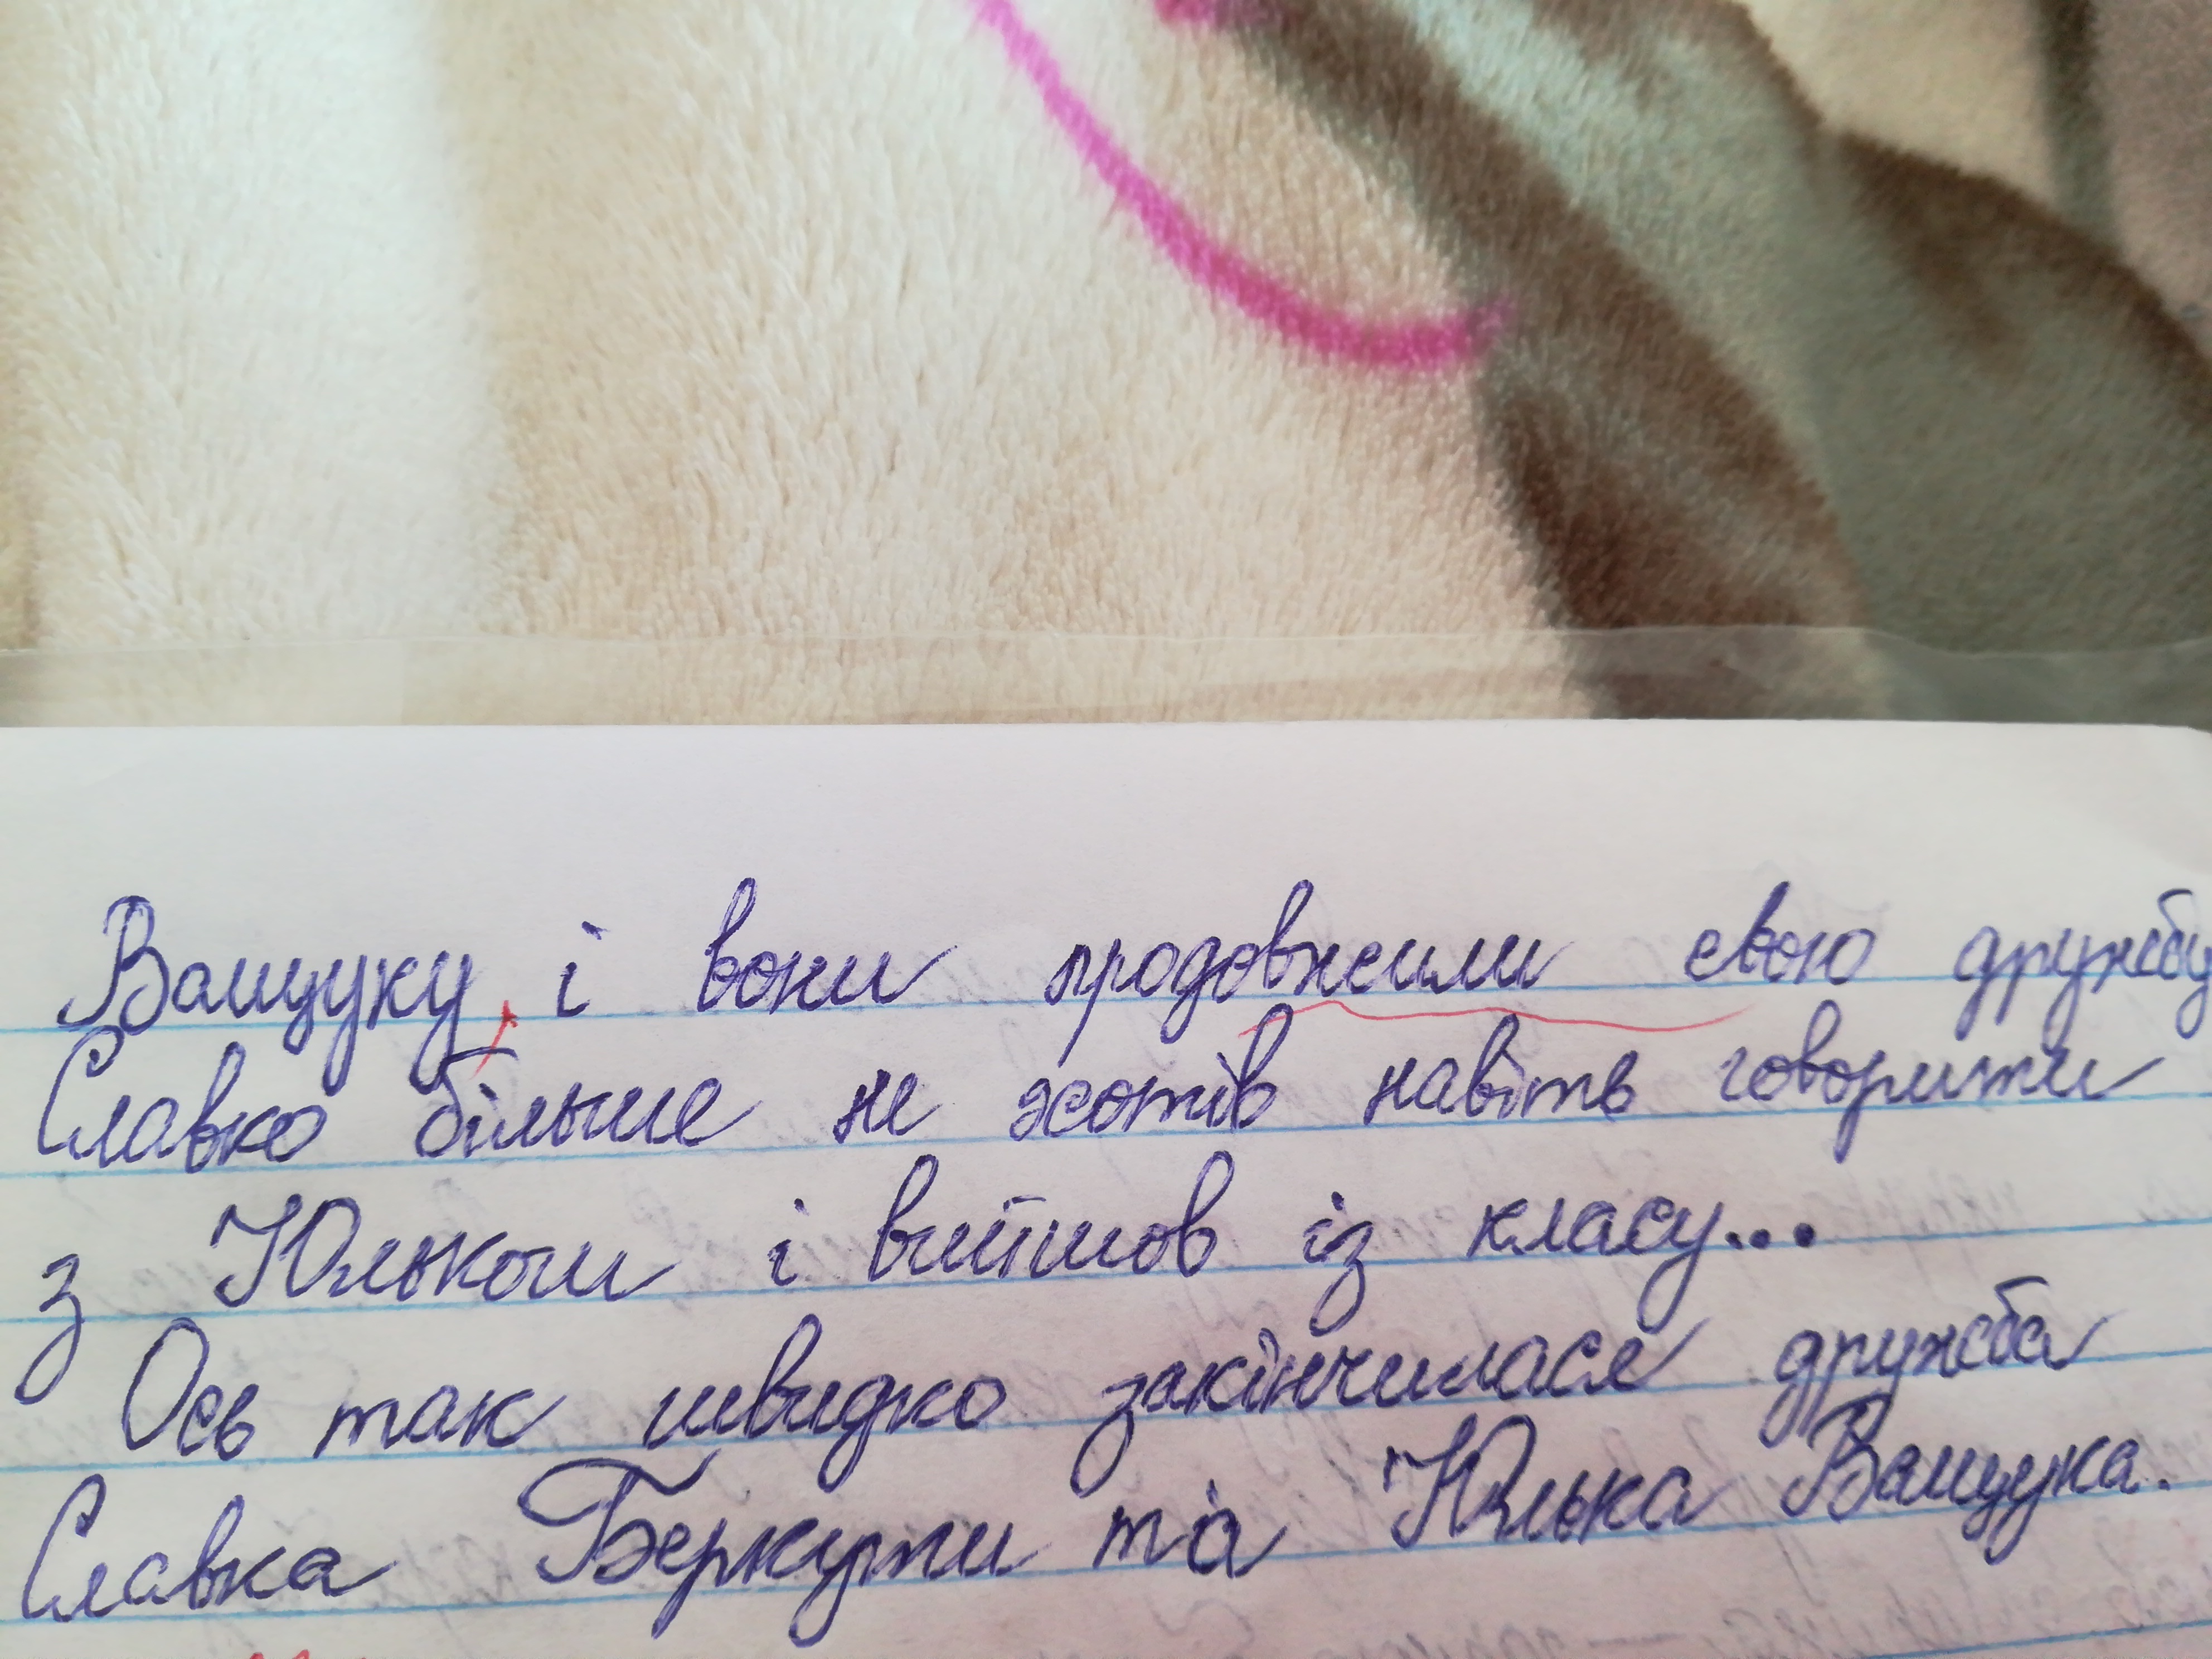 Ващуку, і вони продовжили свою дружбу
Славко більше не хотів навіть говорити
з Юльком і вийшов із класу...
Ось так швидко закінчилася дружба
Славка Беркути та Юлька Ващука.